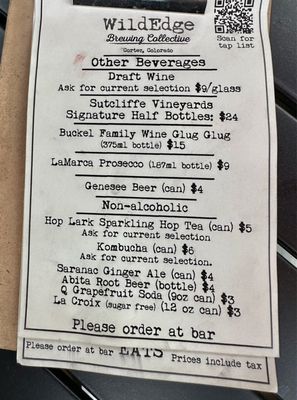 WildEdge
Brewing Collective
Cortez, Colorado
Scan for
tap list
Other Beverages
Draft Wine
Ask for current selection $9/glass
Sutcliffe Vineyards
Signature Half Bottles: $24
Buckel Family Wine Glug Glug
(375ml bottle) $15
LaMarca Prosecco (187ml bottle) $9
Genesee Beer (can) $4
Non-alcoholic
Hop Lark Sparkling Hop Tea (can) $5
Ask for current selection
Kombucha (can) $6
Ask for current selection.
Saranac Ginger Ale (can) $4
Abita Root Beer (bottle) $4
Q Grapefruit Soda (9oz can) $3
La Croix (sugar free) (12 oz can) $3
Please order at bar
Please order at bar EATS Prices include tax